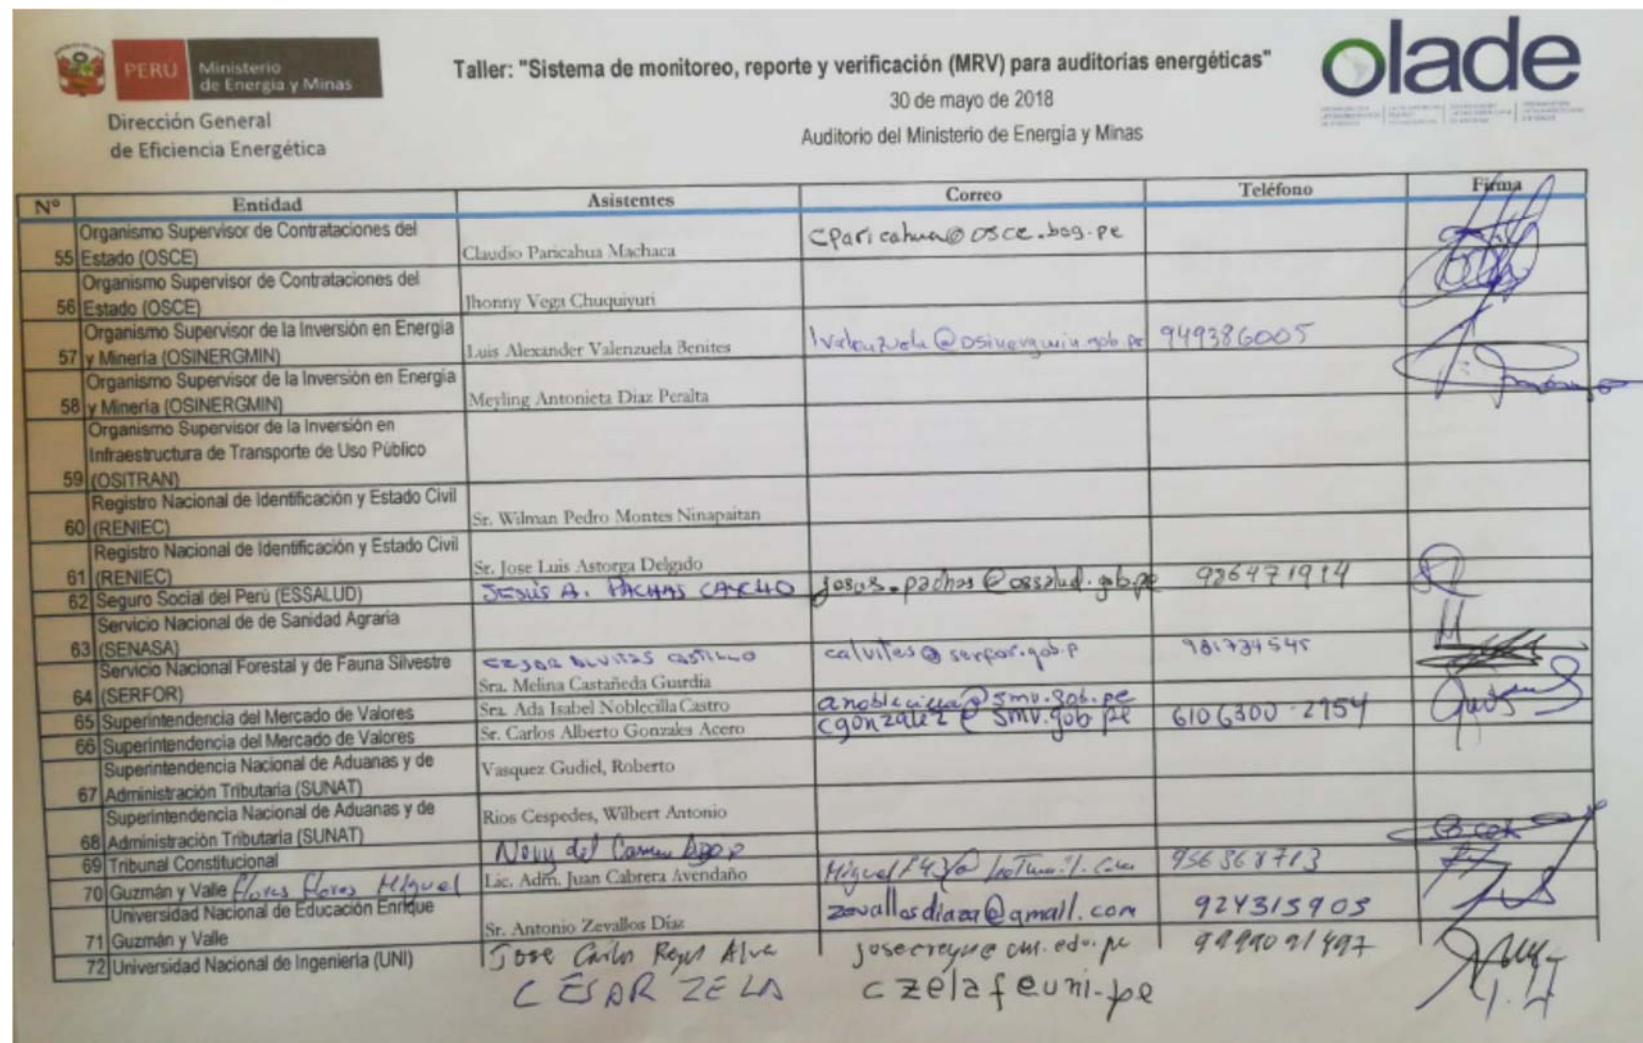 PERÚ Ministerio
de Energía y Minas
Dirección General
de Eficiencia Energética
Taller: "Sistema de monitoreo, reporte y verificación (MRV) para auditorías energéticas"
30 de mayo de 2018
Auditorio del Ministerio de Energía y Minas
olade
Nº Entidad Asistentes Correo Teléfono Firma
Organismo Supervisor de Contrataciones del
55 Estado (OSCE) Claudio Paricahua Machaca cparicahua@osce.bog.pe
Organismo Supervisor de Contrataciones del
56 Estado (OSCE) Jhonny Vega Chuquiyuri
Organismo Supervisor de la Inversión en Energía
57 y Minería (OSINERGMIN) Luis Alexander Valenzuela Benites lvalenzuela@osinergmin.gob.pe 949386005
Organismo Supervisor de la Inversión en Energía
58 y Minería (OSINERGMIN) Meyling Antonieta Diaz Peralta
Organismo Supervisor de la Inversión en
Infraestructura de Transporte de Uso Público
59 (OSITRAN)
Registro Nacional de Identificación y Estado Civil
60 (RENIEC) Sr. Wilman Pedro Montes Ninapaitan
Registro Nacional de Identificación y Estado Civil
61 (RENIEC) Sr. Jose Luis Astorga Delgado
62 Seguro Social del Perú (ESSALUD) JESÚS A. PACHAS jesus.pachas@essalud.gob.pe 986471914
Servicio Nacional de de Sanidad Agraria
63 (SENASA)
Servicio Nacional Forestal y de Fauna Silvestre CESAR ALVITES CASTILLO calvites@serfor.gob.p 981734545
64 (SERFOR) Sra. Melina Castañeda Guardia
65 Superintendencia del Mercado de Valores Sra. Ada Isabel Noblecilla Castro anoblecilla@smv.gob.pe
66 Superintendencia del Mercado de Valores Sr. Carlos Alberto Gonzales Acero cgonzalez@smv.gob.pe 6106300-2154
Superintendencia Nacional de Aduanas y de
67 Administración Tributaria (SUNAT) Vasquez Gudiel, Roberto
Superintendencia Nacional de Aduanas y de
68 Administración Tributaria (SUNAT) Rios Cespedes, Wilbert Antonio
69 Tribunal Constitucional del Carmen
70 Guzmán y Valle Flores Flores Miguel Lic. Adm. Juan Cabrera Avendaño 956868713
Universidad Nacional de Educación Enrique
71 Guzmán y Valle Sr. Antonio Zevallos Díaz zevallosdiaza@gmail.com 924315903
72 Universidad Nacional de Ingeniería (UNI) Jose Carlos Reyes Alva 999091497
CÉSAR ZELA czelafeuni.pe